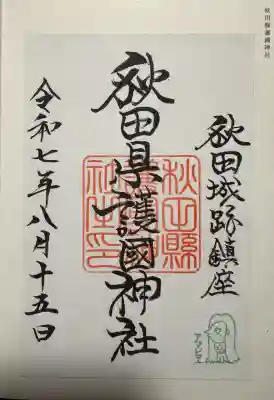 秋田縣護國神社
秋田城跡鎮座
秋田県護國神社
令和七年八月十五日
アマビエ